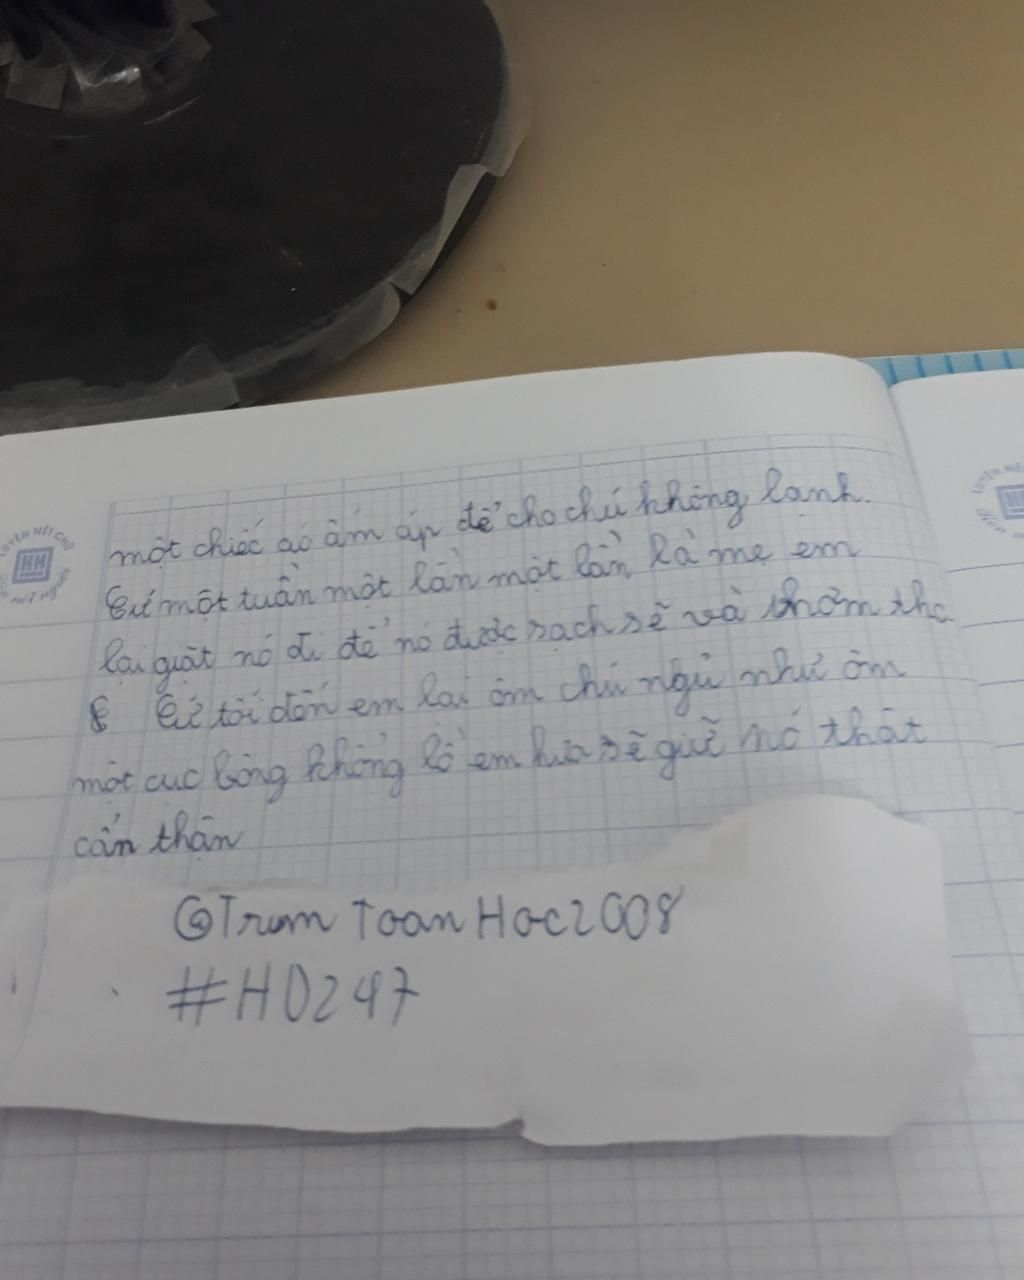 một chiếc áo ấm áp để cho chú không lạnh.
Cứ một tuần một lần một lần là mẹ em
lại giặt nó đi để nó được sạch sẽ và thơm tho
Cứ tối đến em lại ôm chú ngủ như ôm
một cục bông khổng lồ em hứa sẽ giữ nó thật
cẩn thận
@TrumToanHoc2008
#HD247
LUYỆN NÉT CHỮ
HH